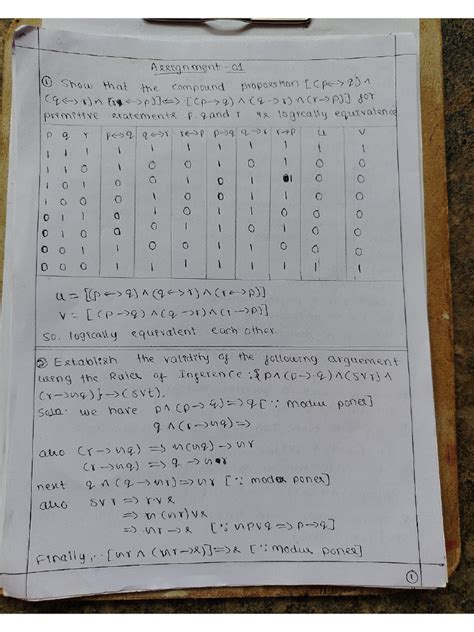 Assignment - 01
① Show that the compound proposition [(p↔q)∧
(q↔r)∧[r↔p)]⇔[(p→q)∧(q→r)∧(r→p)] for
primitive statements p, q and r is logically equivalence
p q r p↔q q↔r r↔p p→q q→r r→p u v
1 1 1 1 1 1 1 1 1 1 1
1 1 0 1 0 0 1 0 1 0 0
1 0 1 0 0 1 0 1 1 0 0
1 0 0 0 1 0 0 1 1 0 0
0 1 1 0 1 0 1 1 0 0 0
0 1 0 0 0 1 1 0 1 0 0
0 0 1 1 0 0 1 1 0 0 0
0 0 0 1 1 1 1 1 1 1 1
u = [(p↔q)∧(q↔r)∧(r↔p)]
v = [(p→q)∧(q→r)∧(r→p)]
So, logically equivalent each other.
② Establish the validity of the following arguement
using the Rules of Inference :{p∧(p→q)∧(svr)∧
(r→nq)}→(svt).
Soln: we have p∧(p→q)⇒q[∵ modus pones]
q∧(r→nq)⇒
also (r→nq) ⇒ n(nq)→nr
(r→nq) ⇒ q→nr
next q∧(q→nr)⇒nr [∵ modus pones]
also svr ⇒ rvs
⇒ n(nr)vs
⇒ nr→s [∵ npvq ⇒ p→q]
Finally, ∵ [nr∧(nr→s)]⇒s [∵ modus pones]
①